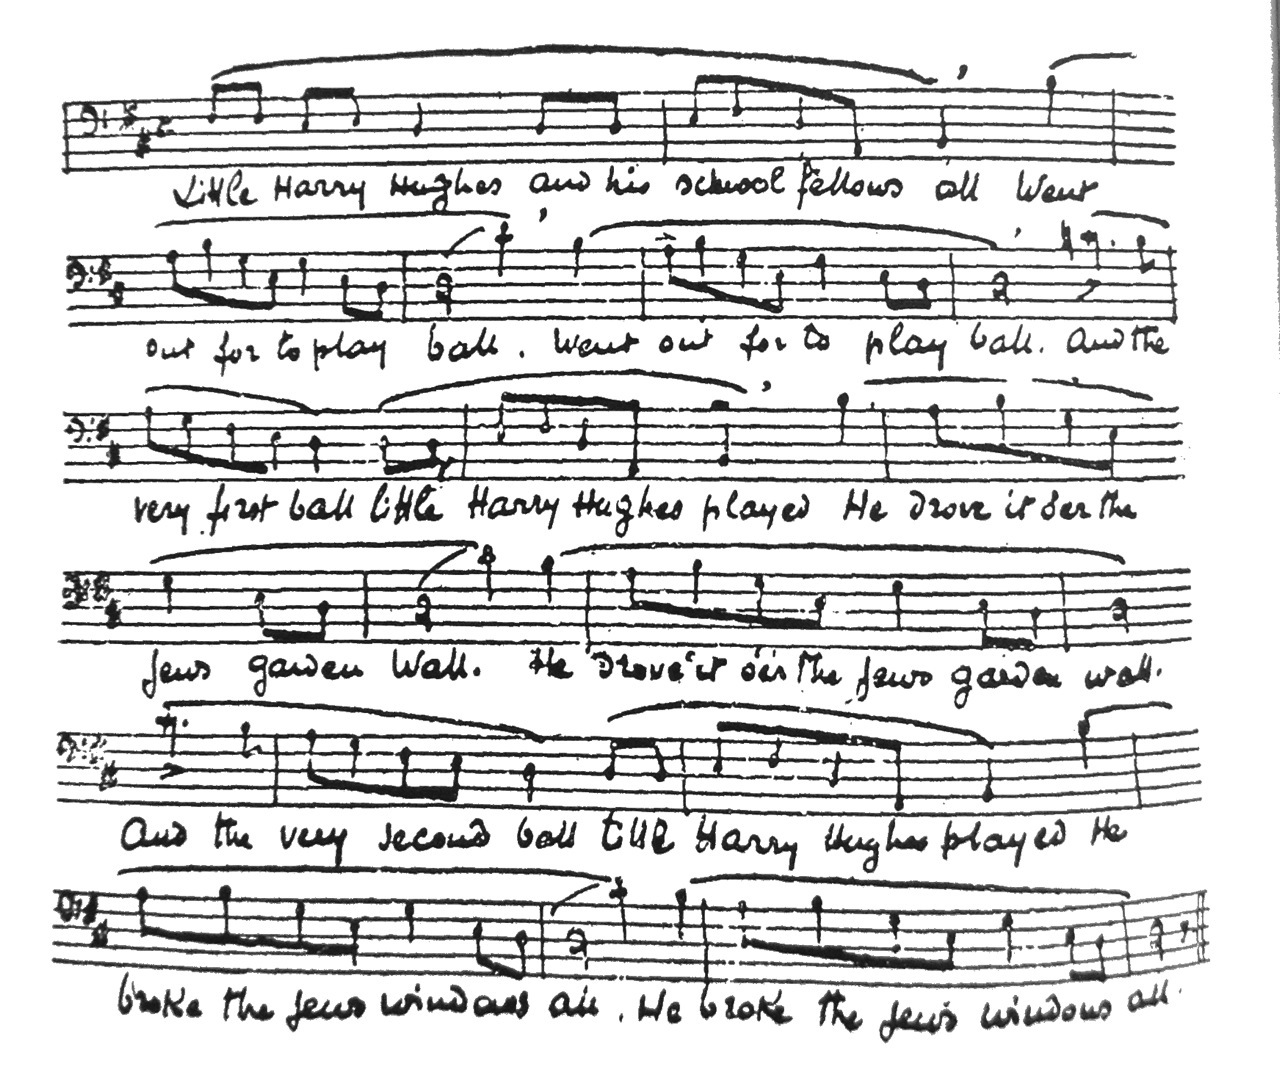 Little Harry Hughes and his school fellows all Went
out for to play ball. Went out for to play ball. And the
very first ball little Harry Hughes played He drove it o'er the
jews garden Wall. He drove it o'er the jews garden wall.
And the very second ball little Harry Hughes played He
broke the jews windows all. He broke the jews windows all.